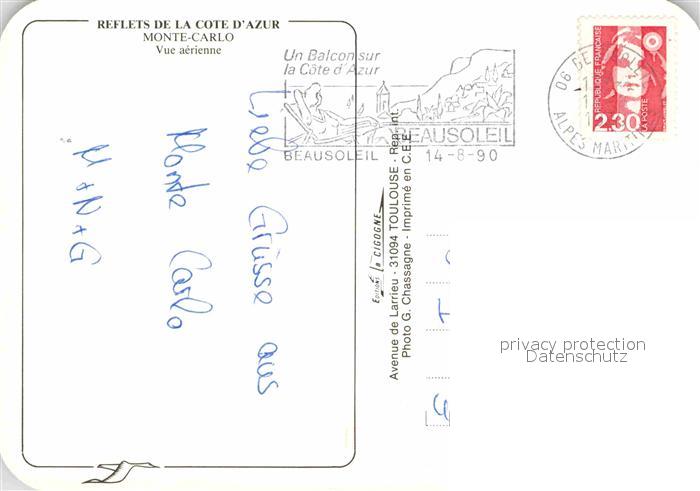 REFLETS DE LA COTE D'AZUR
MONTE-CARLO
Vue aérienne
Liebe Grüsse aus
Monte Carlo
M+N+G
Un Balcon sur
la Côte d'Azur
BEAUSOLEIL
BEAUSOLEIL 14-8-90
06
ALPES MARIT
REPUBLIQUE FRANÇAISE
2,30
LA POSTE
EDITIONS LA CIGOGNE
Avenue de Larrieu · 31094 TOULOUSE · Rep. int.
Photo G. Chassagne - Imprimé en C.E.E.
privacy protection
Datenschutz